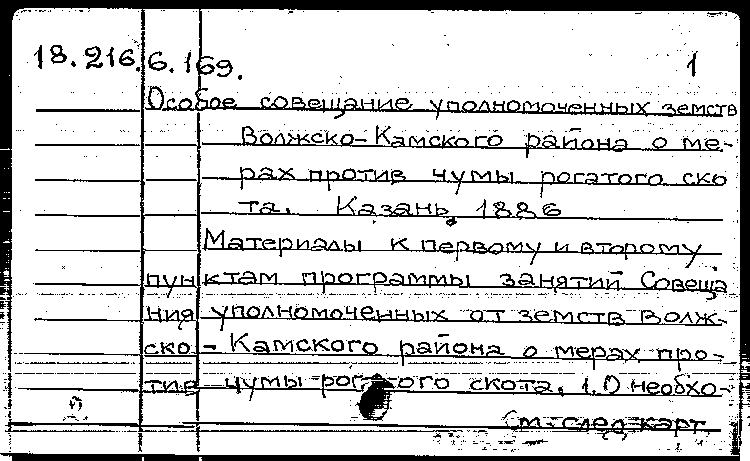 18.216.6.169.
1
Особое совещание уполномоченных земств
Волжско-Камского района о ме-
рах против чумы рогатого ско
та. Казань, 1886
Материалы к первому и второму
пунктам программы занятий Совеща
ния уполномоченных от земств Волж-
ско-Камского района о мерах про-
тив чумы рогатого скота. 1. О необхо-
См. след. карт.